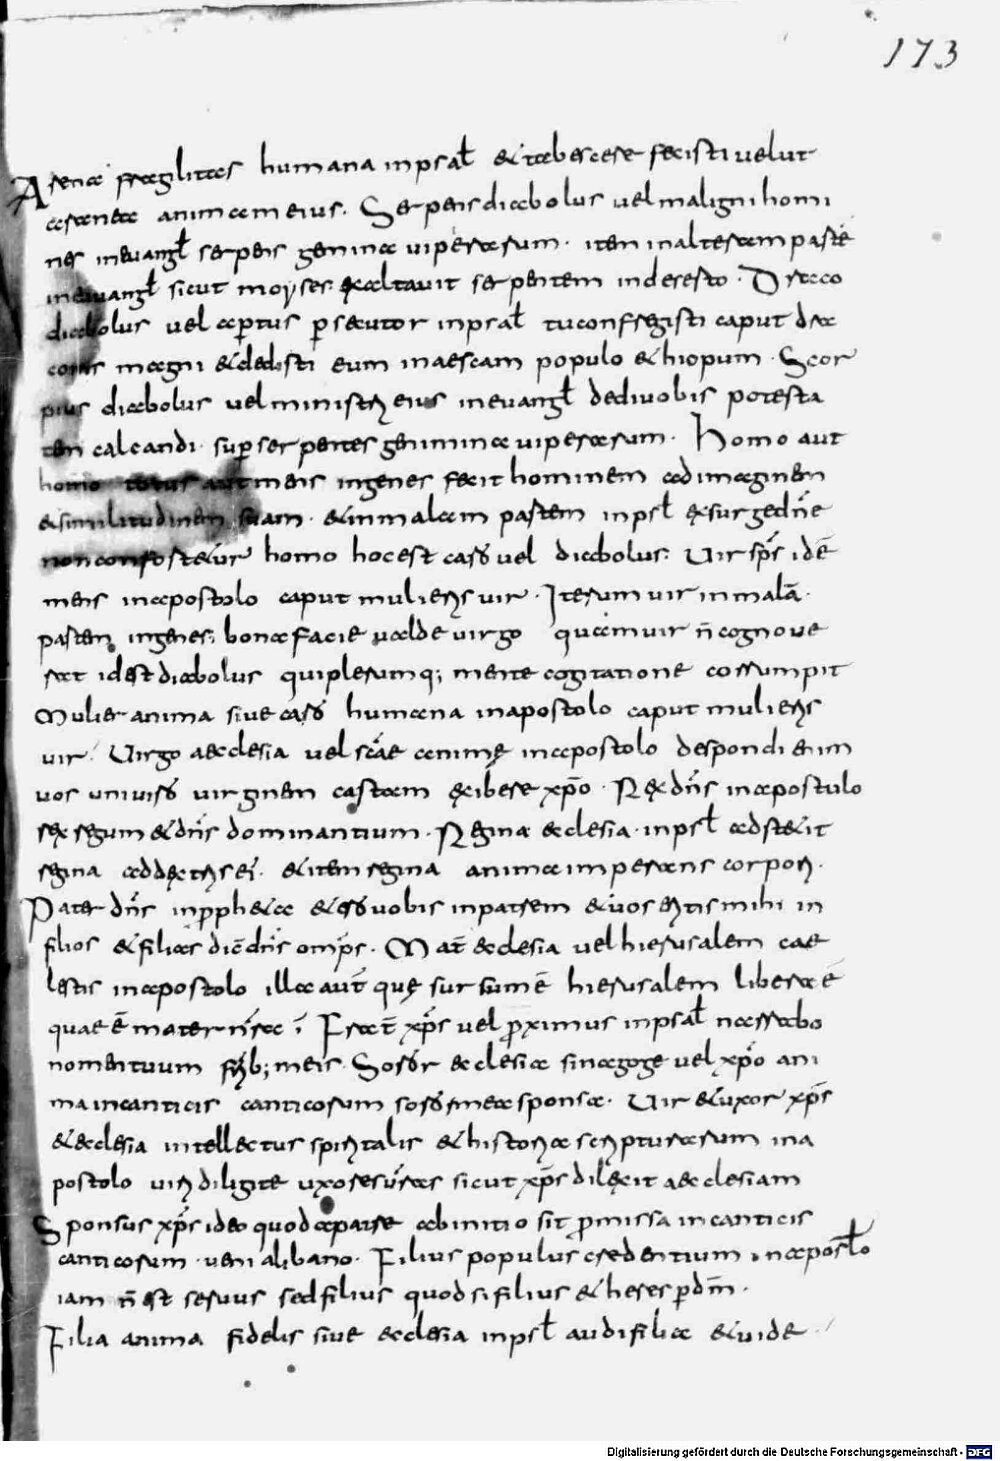 173
Arenea fragilitas humana in psal̄ et tabescere fecisti velut
araneae animam eius. Serpens diabolus vel maligni homi
nes in euangł serpens genimina viperarum. item in alteram parte
in euangł sicut moyses exaltavit serpentem in deserto. Draco
diabolus vel apertus p̱secutor in psal̄ tu confregisti caput dra
conis magni et dedisti eum in aescam populo ethiopum. Scor
pius diabolus vel ministri eius in euangł dedi vobis potesta
tem calcandi sup̱ serpentes genimina viperarum. Homo aut
homo totus aut mens in genes fecit hominem ad imaginem
et similitudinem suam. et in malam partem in psł exsurge dn̄e
non confortetur homo hoc est caro vel diabolus. Vir sp̄s idē
mens in apostolo caput mulieris vir. Iterum vir in malā
partem in genes; bona facie valde virgo quam vir n̄ cognove
rat id est diabolus qui plerumq; mente cogitatione corrumpit
Mulier anima sive caro humana in apostolo caput mulieris
vir. Virgo aecclesia vel scāe animę in apostolo despondi enim
vos uni viro virginem castam exibere xp̄o. Rex dn̄s in apostulo
rex regum et dn̄s dominantium. Regina ecclesia in psł adstetit
regina ad dextris ei'. et item regina anima imperans corpori.
Pater dn̄s in p̱pheta et ero vobis in patrem et vos eritis mihi in
filios et filias dic̄ dn̄s omp̄s. Mat̄ ecclesia vel hierusalem cae
lestis in apostolo illa aut̄ quę sursum ē hierusalem libera ē
quae ē mater nr̄a. Frat̄ xp̄s vel proximus in psal̄ narrabo
nomen tuum frīb; meis. Soror ecclesia sinagoge vel xp̄o ani
ma in canticis canticorum soror mea sponsa. Vir et uxor xp̄s
et ecclesia intellectus spiritalis et historia scripturarum in a
postolo viri diligite uxores vr̄as sicut xp̄s dilexit aecclesiam
Sponsus xp̄s ideo quod a patre ab initio sit promissa in canticis
canticorum. veni a libano. Filius populus credentium in apostło
iam n̄ est servus sed filius quod si filius et heres p̱ dm̄.
Filia anima fidelis sive ecclesia in psł audi filia et vide
Digitalisierung gefördert durch die Deutsche Forschungsgemeinschaft - DFG